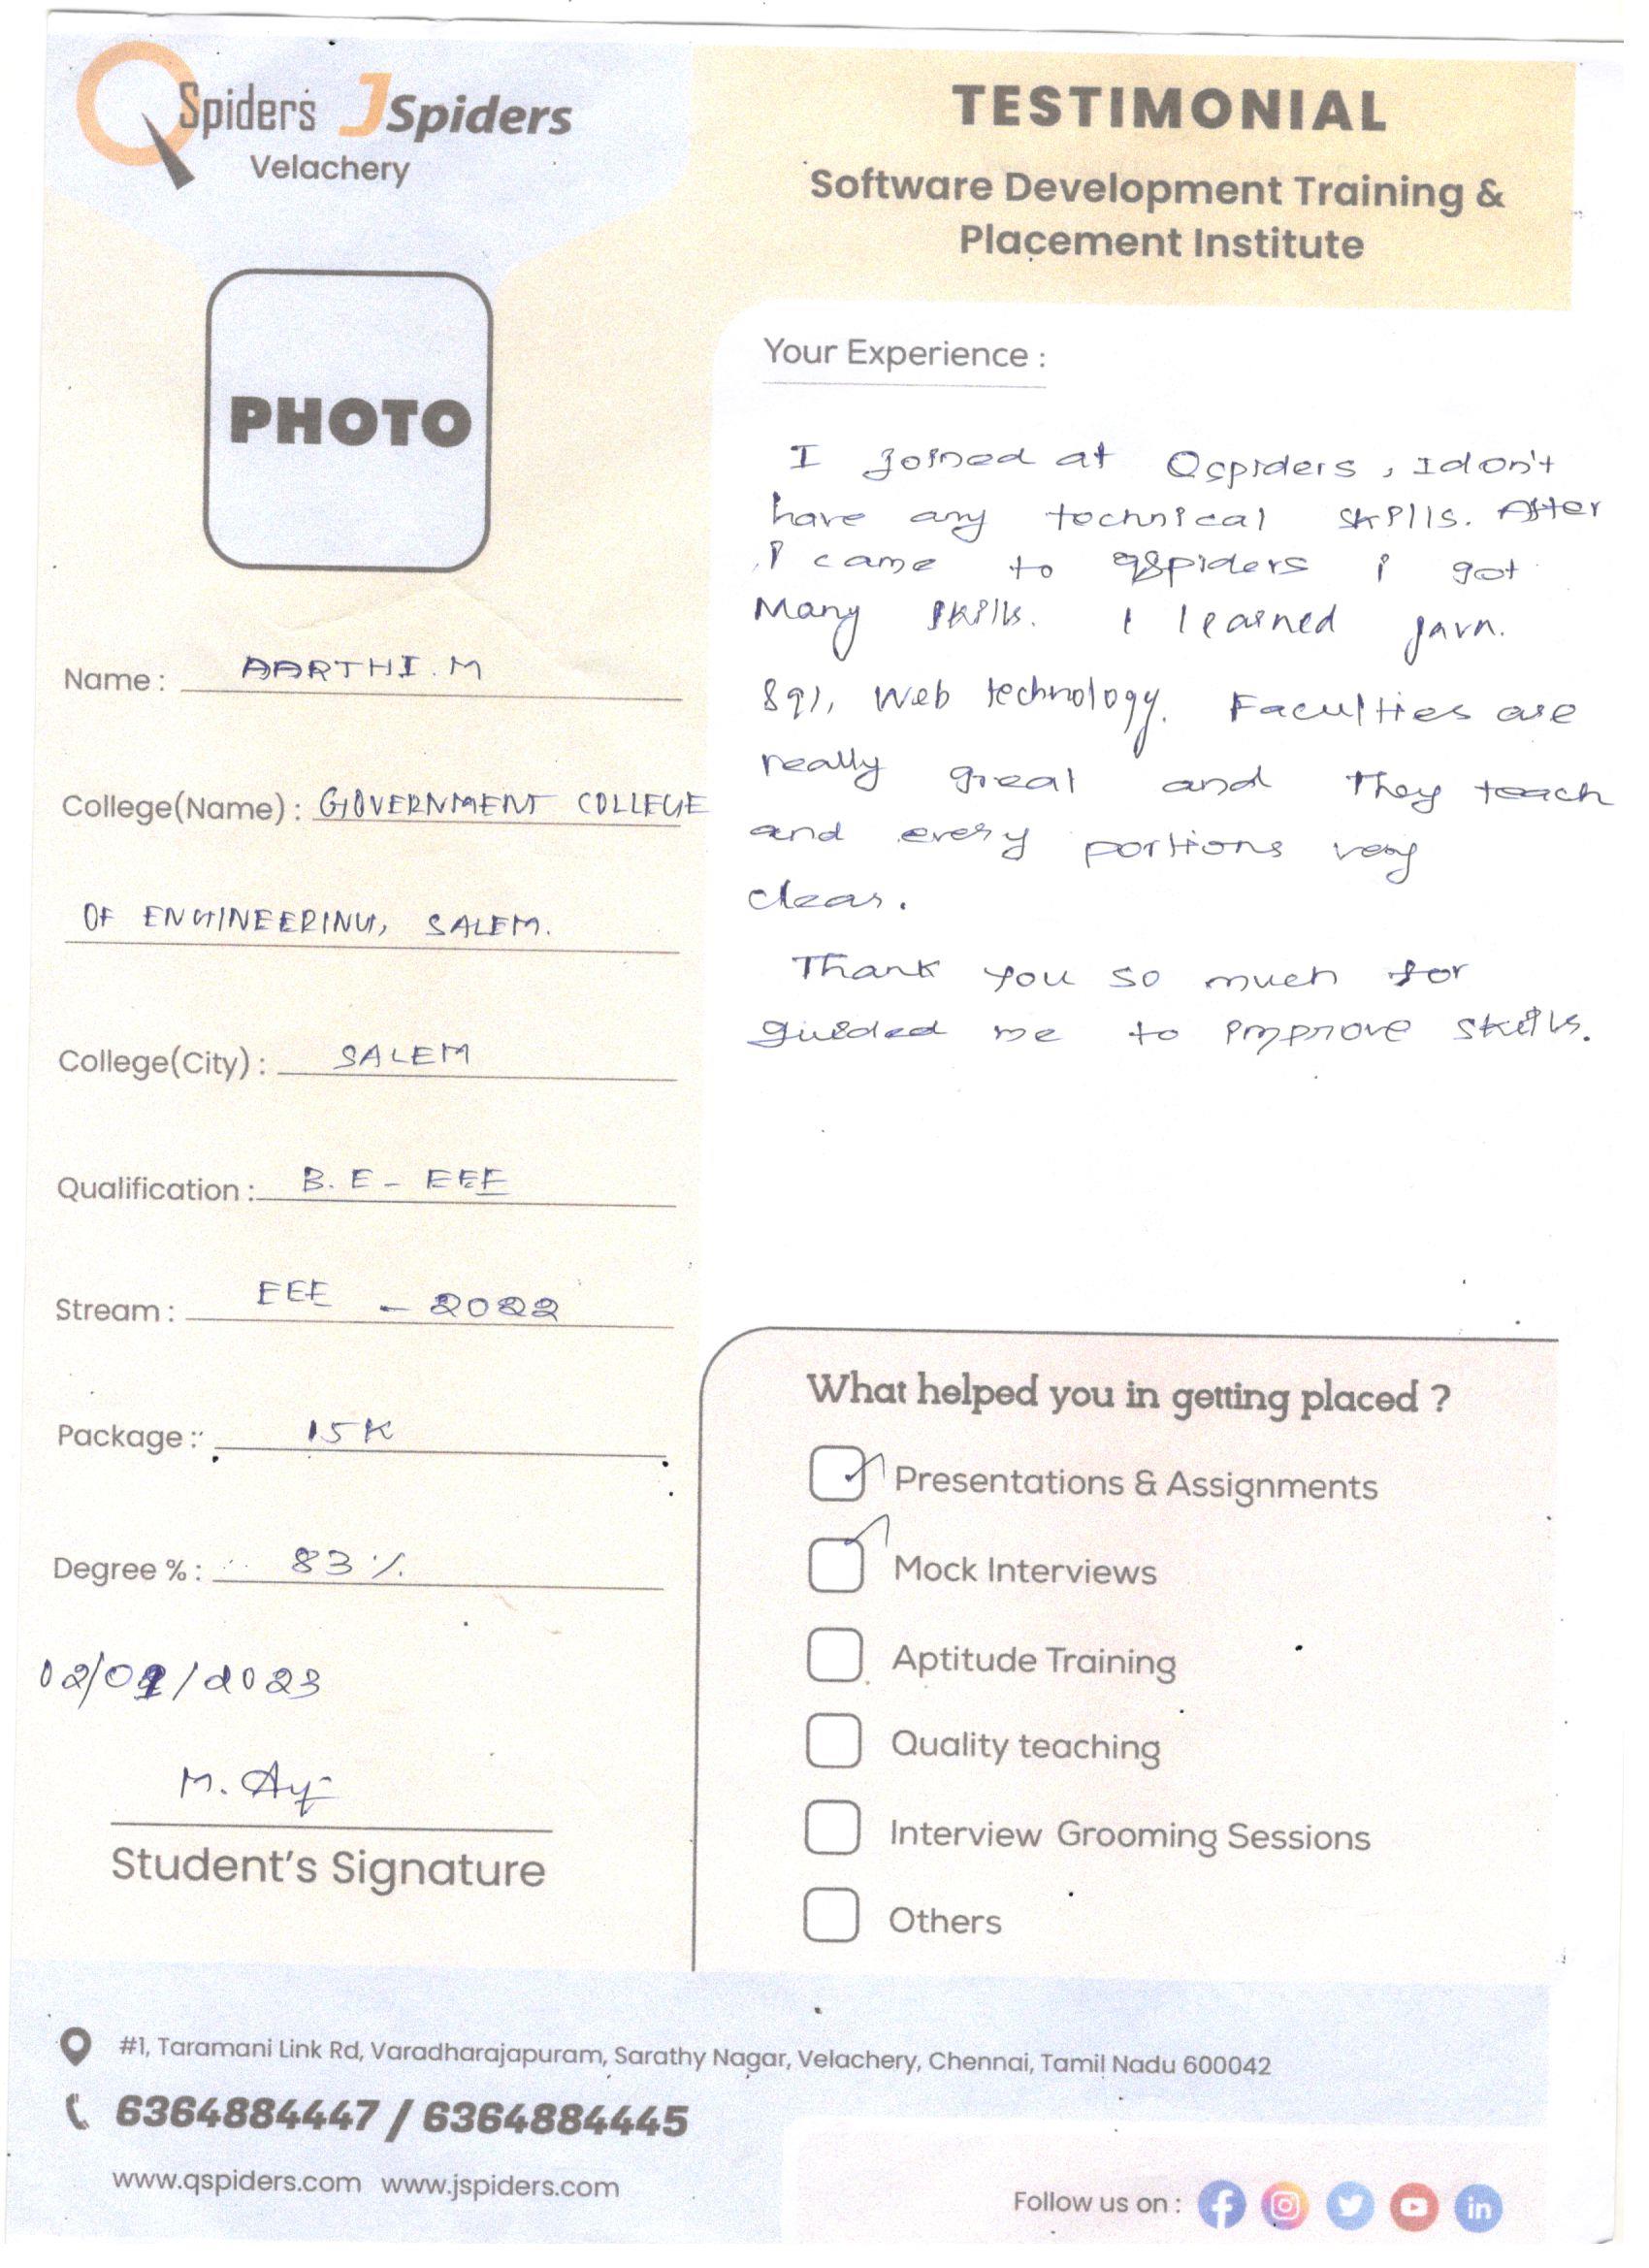 QSpiders JSpiders
Velachery
TESTIMONIAL
Software Development Training &
Placement Institute
PHOTO
Name : AARTHI.M
College(Name) : GOVERNMENT COLLEGE
OF ENGINEERING, SALEM.
College(City) : SALEM
Qualification : B.E - EEE
Stream : EEE - 2022
Package : 15K
Degree % : 83%
02/01/2023
M.
Student's Signature
Your Experience :
I joined at Qspiders, I don't
have any technical skills. After
I came to qspiders i got
Many skills. I learned java.
sql, Web technology. Faculties are
really great and They teach
and every portions very
clear.
Thank you so much for
guided me to improve skills.
What helped you in getting placed ?
Presentations & Assignments
Mock Interviews
Aptitude Training
Quality teaching
Interview Grooming Sessions
Others
#1, Taramani Link Rd, Varadharajapuram, Sarathy Nagar, Velachery, Chennai, Tamil Nadu 600042
6364884447 / 6364884445
www.qspiders.com www.jspiders.com
Follow us on :